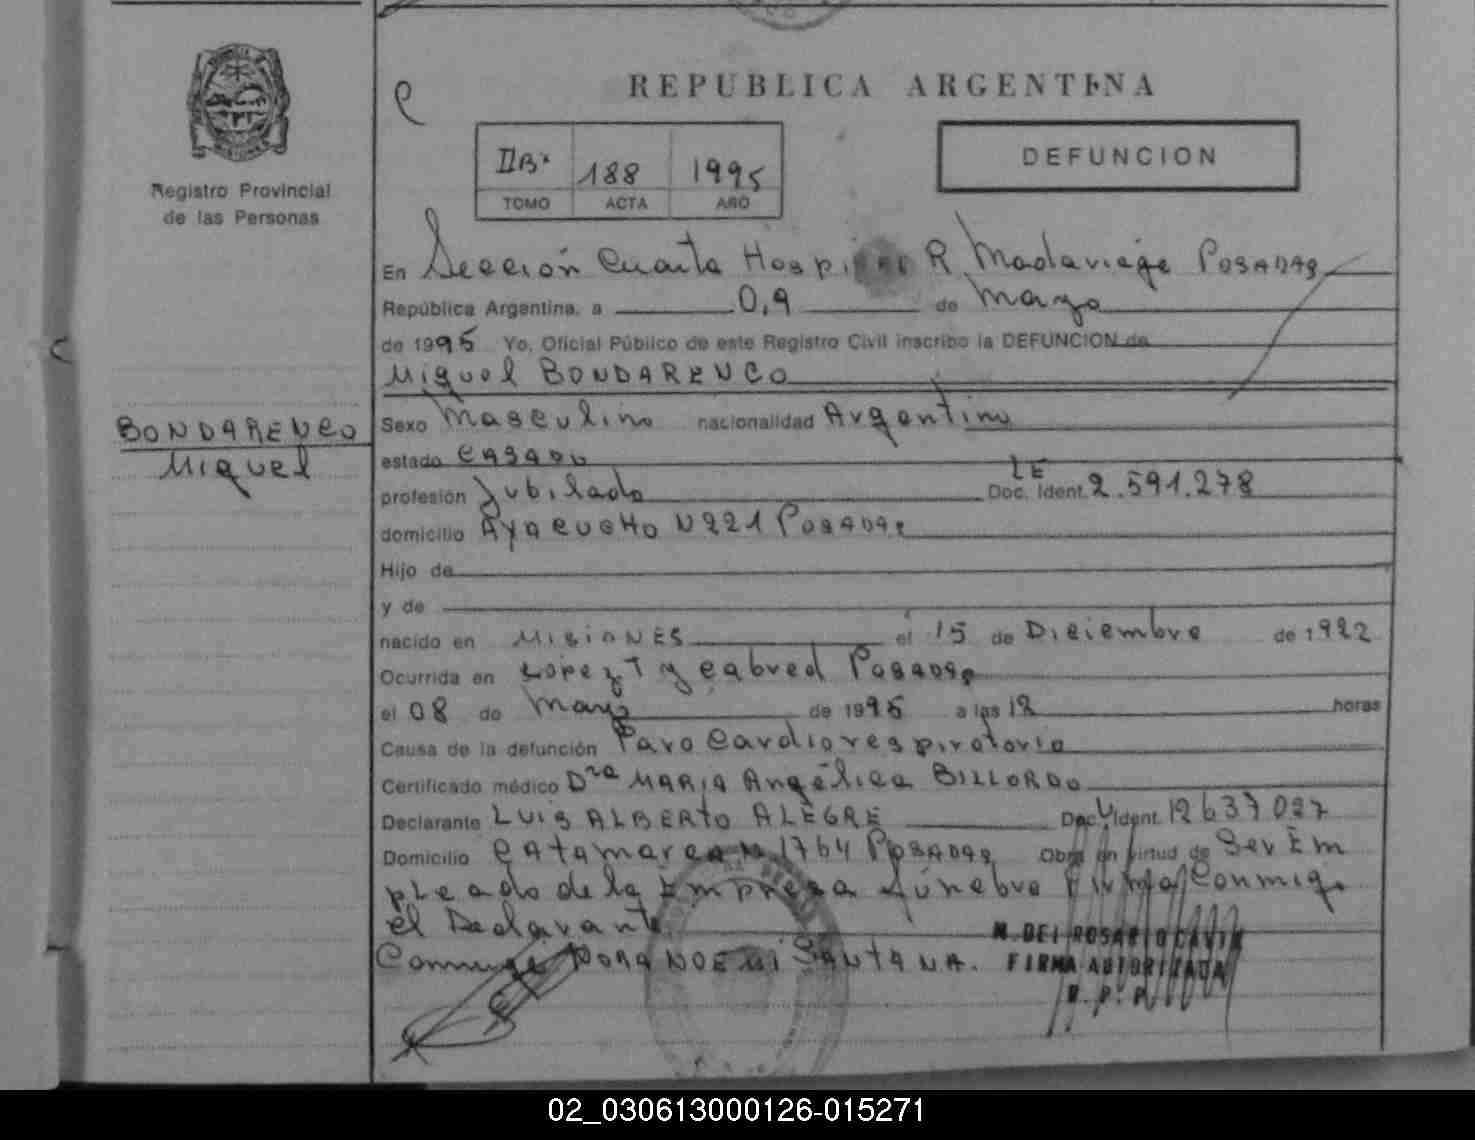 REPUBLICA ARGENTINA
IIBº 188 1995
TOMO ACTA AÑO
DEFUNCION
Registro Provincial
de las Personas
En Sección Cuarta Hospital R Madariaga POSADAS
República Argentina, a 0,9 de Marzo
de 1995 Yo, Oficial Público de este Registro Civil inscribo la DEFUNCION de
Miguel BONDARENCO
BONDARENCO
Miguel
Sexo Masculino nacionalidad Argentino
estado CASADO
profesión Jubilado Doc. Ident. LE 2.591.278
domicilio AYACUCHO N221 POSADAS
Hijo de
y de
nacido en MISIONES el 15 de Diciembre de 1922
Ocurrida en Lopez T y Cabred POSADAS
el 08 de Marzo de 1995 a las 18 horas
Causa de la defunción Paro Cardiorespiratorio
Certificado médico Dra MARIA Angélica BILLORDO
Declarante LUIS ALBERTO ALEGRE Doc. Ident. 12637027
Domicilio CATAmarca N 1764 POSADAS Obra en virtud de Ser Em
pleado de la Empresa fúnebre Firma Conmigo
el Declarante
Conyuge DORA NOEMI SANTANA.
M. DEL ROSARIO
FIRMA AUTORIZADA
R. P. P.
02_030613000126-015271